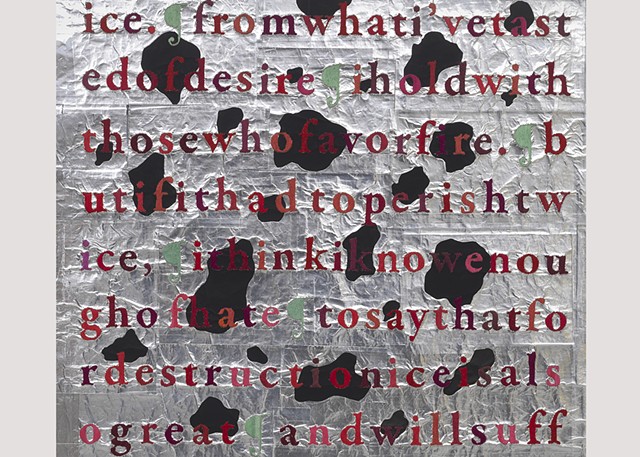 ice.¶fromwhati'vetast
edofdesire¶iholdwith
thosewhofavorfire.¶b
utifithadtoperishtw
ice,¶ithinkiknowenou
ghofhate¶tosaythatfo
rdestructioniceisals
ogreat¶andwillsuff